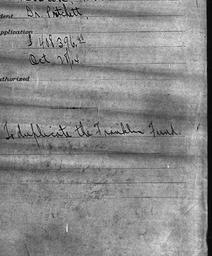 dent Dr. Pritchett,
pplication
$ 408,396.48
Oct 28/14
uthorized
To duplicate the Franklin Fund.